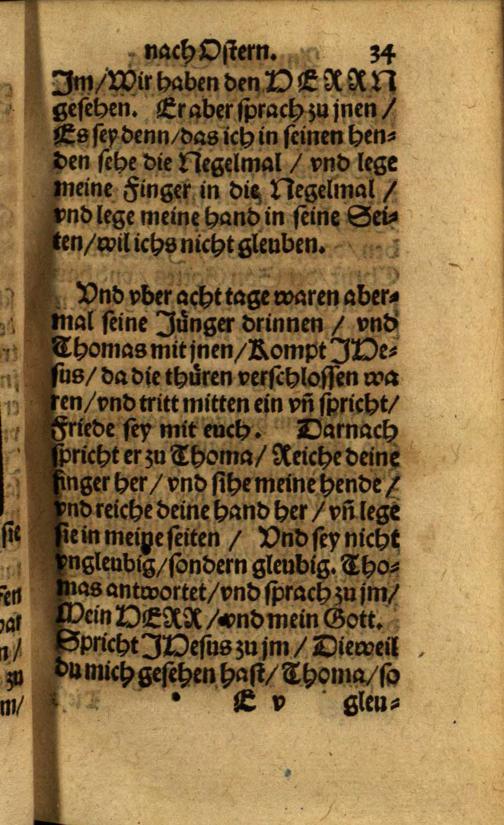 nach Ostern. 34
Jm/Wir haben den HERRN
gesehen. Er aber sprach zu jnen /
Es sey denn/das ich in seinen hen⸗
den sehe die Negelmal / vnd lege
meine Finger in die Negelmal /
vnd lege meine hand in seine Sei⸗
ten/wil ichs nicht gleuben.
Vnd vber acht tage waren aber⸗
mal seine Jünger drinnen / vnd
Thomas mit jnen/Kompt JHe⸗
sus/da die thüren verschlossen wa
ren/vnd tritt mitten ein vñ spricht/
Friede sey mit euch. Darnach
spricht er zu Thoma/Reiche deine
finger her/vnd sihe meine hende/
vnd reiche deine hand her/vñ lege
sie in meine seiten / Vnd sey nicht
vngleubig/sondern gleubig. Tho⸗
mas antwortet/vnd sprach zu jm/
Mein HERR/vnd mein Gott.
Spricht JHesus zu jm / Dieweil
du mich gesehen hast/Thoma/so
E v gleu⸗
sie
zu